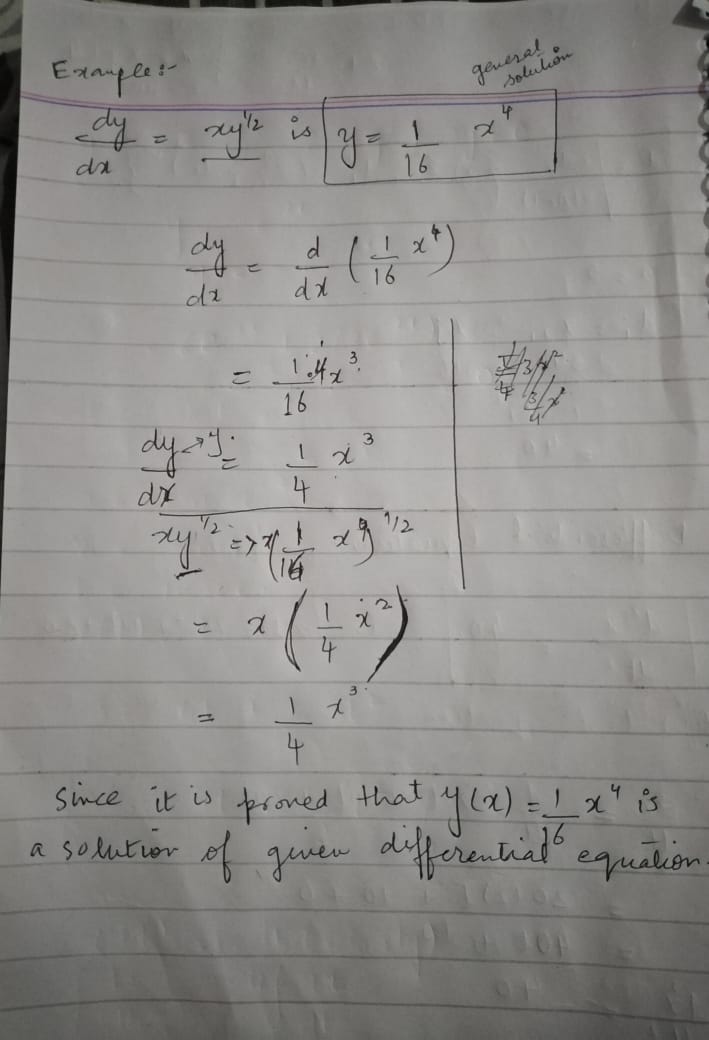 Example :-
general solution
dy/dx = xy^1/2 is y = 1/16 x^4
dy/dx = d/dx (1/16 x^4)
= 1.4x^3/16
dy/dx → y = 1/4 x^3
xy^1/2 => x(1/16 x^4)^1/2
= x(1/4 x^2)
= 1/4 x^3
Since it is proved that y(x) = 1/16 x^4 is
a solution of given differential equation.